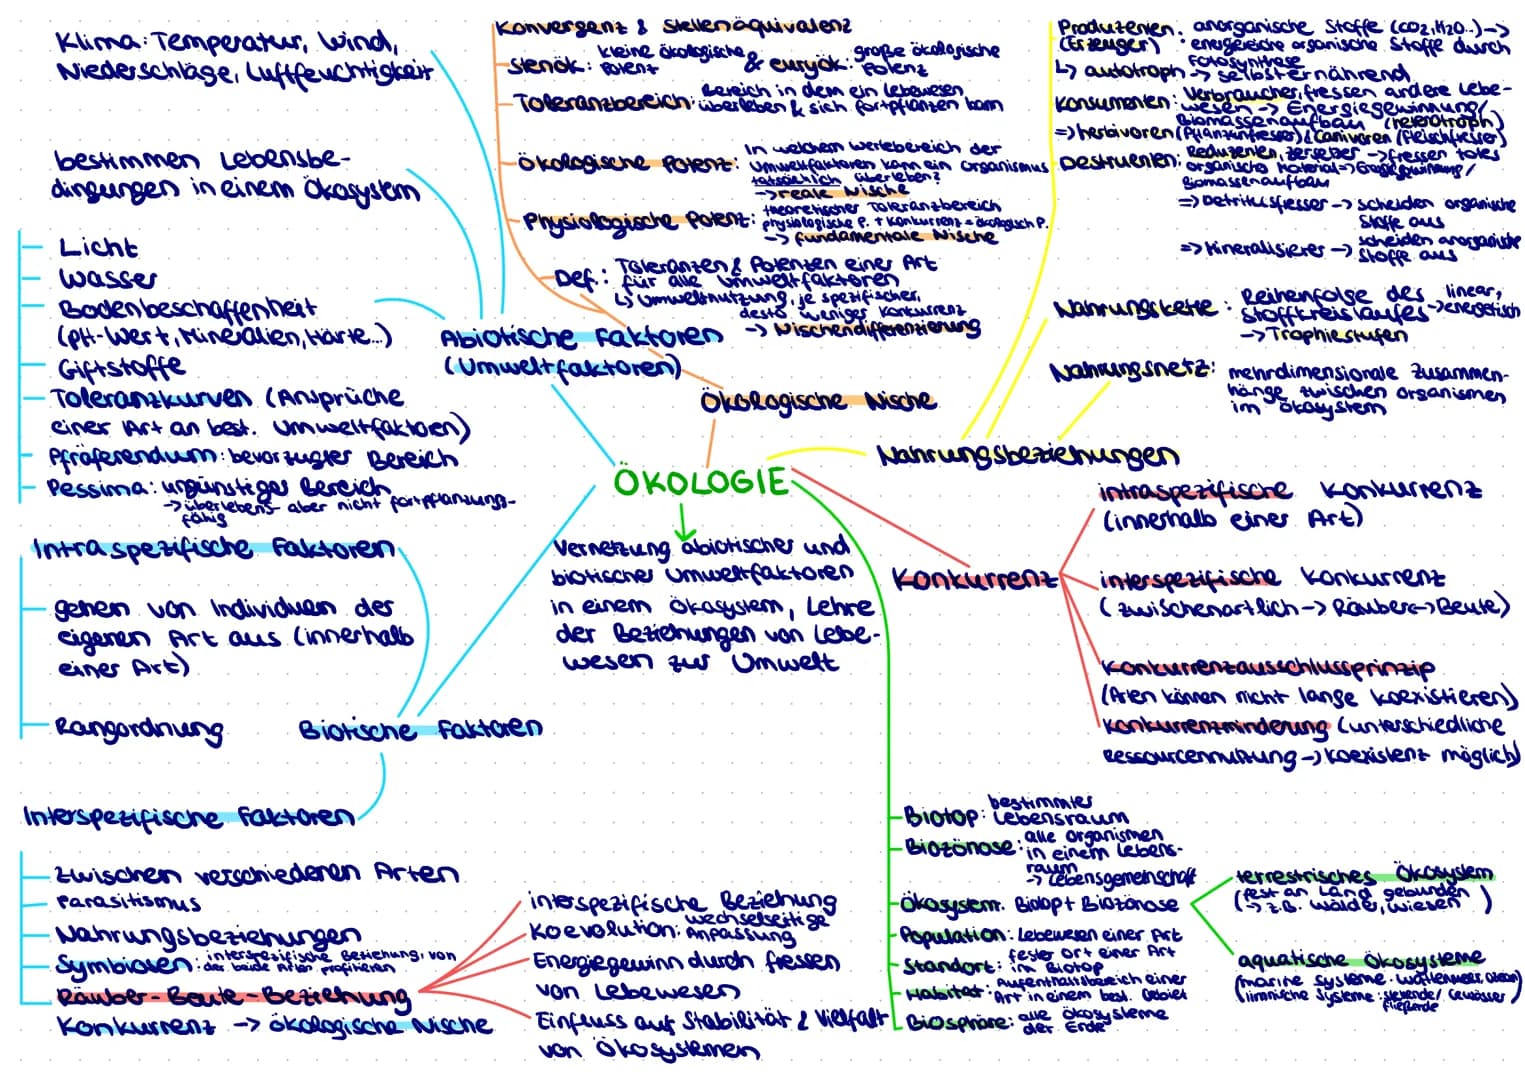 Klima: Temperatur, Wind,
Niederschläge, Luftfeuchtigkeit
bestimmen Lebensbe-
dingungen in einem Ökosystem
Licht
Wasser
Bodenbeschaffenheit
(pH-Wert, Mineralien, Härte...)
Giftstoffe
Toleranzkurven (Ansprüche
einer Art an best. Umweltfaktoren)
Pfräferendum: bevorzugter Bereich
Pessima: ungünstiger Bereich
-> überlebens- aber nicht fortpflanzungs-
fähig
Abiotische Faktoren
(Umweltfaktoren)
Konvergenz & Stellenäquivalenz
Stenök: kleine ökologische Potenz & euryök: große ökologische Potenz
Toleranzbereich: Bereich in dem ein Lebewesen
überleben & sich fortpflanzen kann
Ökologische Potenz: In welchem Wertebereich der
Umweltfaktoren kann ein Organismus
tatsächlich überleben?
-> reale Nische
Physiologische Potenz: theoretischer Toleranzbereich
physiologische P. + Konkurrenz = ökologisch P.
-> fundamentale Nische
Def.: Toleranzen & Potenzen einer Art
für alle Umweltfaktoren
↳ Umweltnutzung, je spezifischer,
desto weniger Konkurrenz
-> Nischendifferenzierung
Ökologische Nische
Produzenten: anorganische Stoffe (CO2, H2O..) ->
(Erzeuger) energiereiche organische Stoffe durch
Fotosynthese
↳ autotroph -> selbsternährend
Konsumenten: Verbraucher, fressen andere Lebe-
wesen -> Energiegewinnung/
Biomassenaufbau (heterotroph)
=> herbivoren (Pflanzenfresser) & Carnivoren (Fleischfresser)
Destruenten: Reduzenten, Zersetzer -> fressen totes
organisches Material => Energiegewinnung/
Biomassenaufbau
=> Detritusfresser -> scheiden organische
Stoffe aus
=> Mineralisierer -> scheiden anorganische
Stoffe aus
Nahrungskette: Reihenfolge des linear,
Stoffkreislaufes -> energetisch
-> Trophiestufen
Nahrungsnetz: mehrdimensionale Zusammen-
hänge zwischen Organismen
im Ökosystem
Nahrungsbeziehungen
ÖKOLOGIE
Vernetzung abiotischer und
biotischer Umweltfaktoren
in einem Ökosystem, Lehre
der Beziehungen von Lebe-
wesen zur Umwelt
Konkurrenz
intraspezifische Konkurrenz
(innerhalb einer Art)
interspezifische Konkurrenz
(zwischenartlich -> Räuber<->Beute)
Konkurrenzausschlussprinzip
(Arten können nicht lange koexistieren)
Konkurrenzminderung (unterschiedliche
Ressourcennutzung -> Koexistenz möglich)
Intraspezifische Faktoren
gehen von Individuen der
eigenen Art aus (innerhalb
einer Art)
Rangordnung
Biotische Faktoren
Interspezifische Faktoren
zwischen verschiedenen Arten
Parasitismus
Nahrungsbeziehungen
Symbiosen: interspezifische Beziehung, von
der beide Arten profitieren
Räuber-Beute-Beziehung
Konkurrenz -> ökologische Nische
interspezifische Beziehung
Koevolution: wechselseitige
Anpassung
Energiegewinn durch fressen
von Lebewesen
Einfluss auf Stabilität & Vielfalt
von Ökosystemen
Biotop: bestimmter
Lebensraum
Biozönose: alle Organismen
in einem Lebens-
raum
-> Lebensgemeinschaft
Ökosystem: Biotop + Biozönose
Population: Lebewesen einer Art
Standort: fester Ort einer Art
im Biotop
Habitat: Aufenthaltsbereich einer
Art in einem best. Gebiet
Biosphäre: alle Ökosysteme
der Erde
terrestrisches Ökosystem
(fest an Land gebunden
-> z.B. Wälder, Wiesen)
aquatische Ökosysteme
(marine Systeme: Wattenmeer, Ozean)
(limnische Systeme: stehende/ Gewässer)
fließende